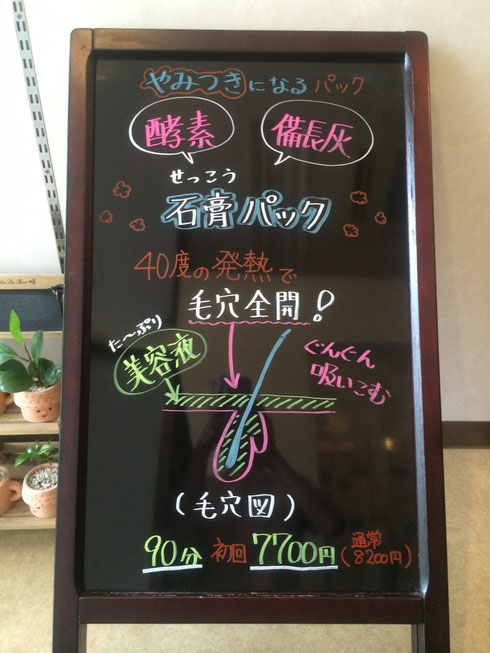 やみつきになるパック
酵素
備長灰
せっこう
石膏パック
40度の発熱で
毛穴全開!
た〜ぷり
美容液
ぐんぐん
吸いこむ
(毛穴図)
90分 初回 7700円 (通常 8200円)